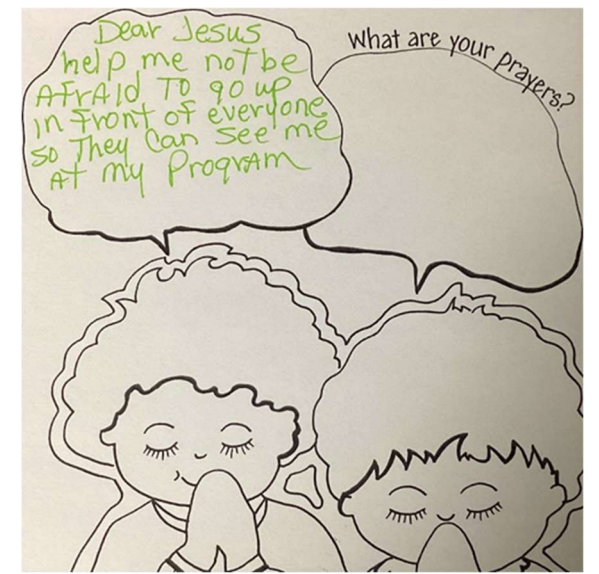 Dear Jesus
help me not be
AfrAId To go up
in front of everyone
so They Can see me
AT my ProgrAm
What are your prayers?